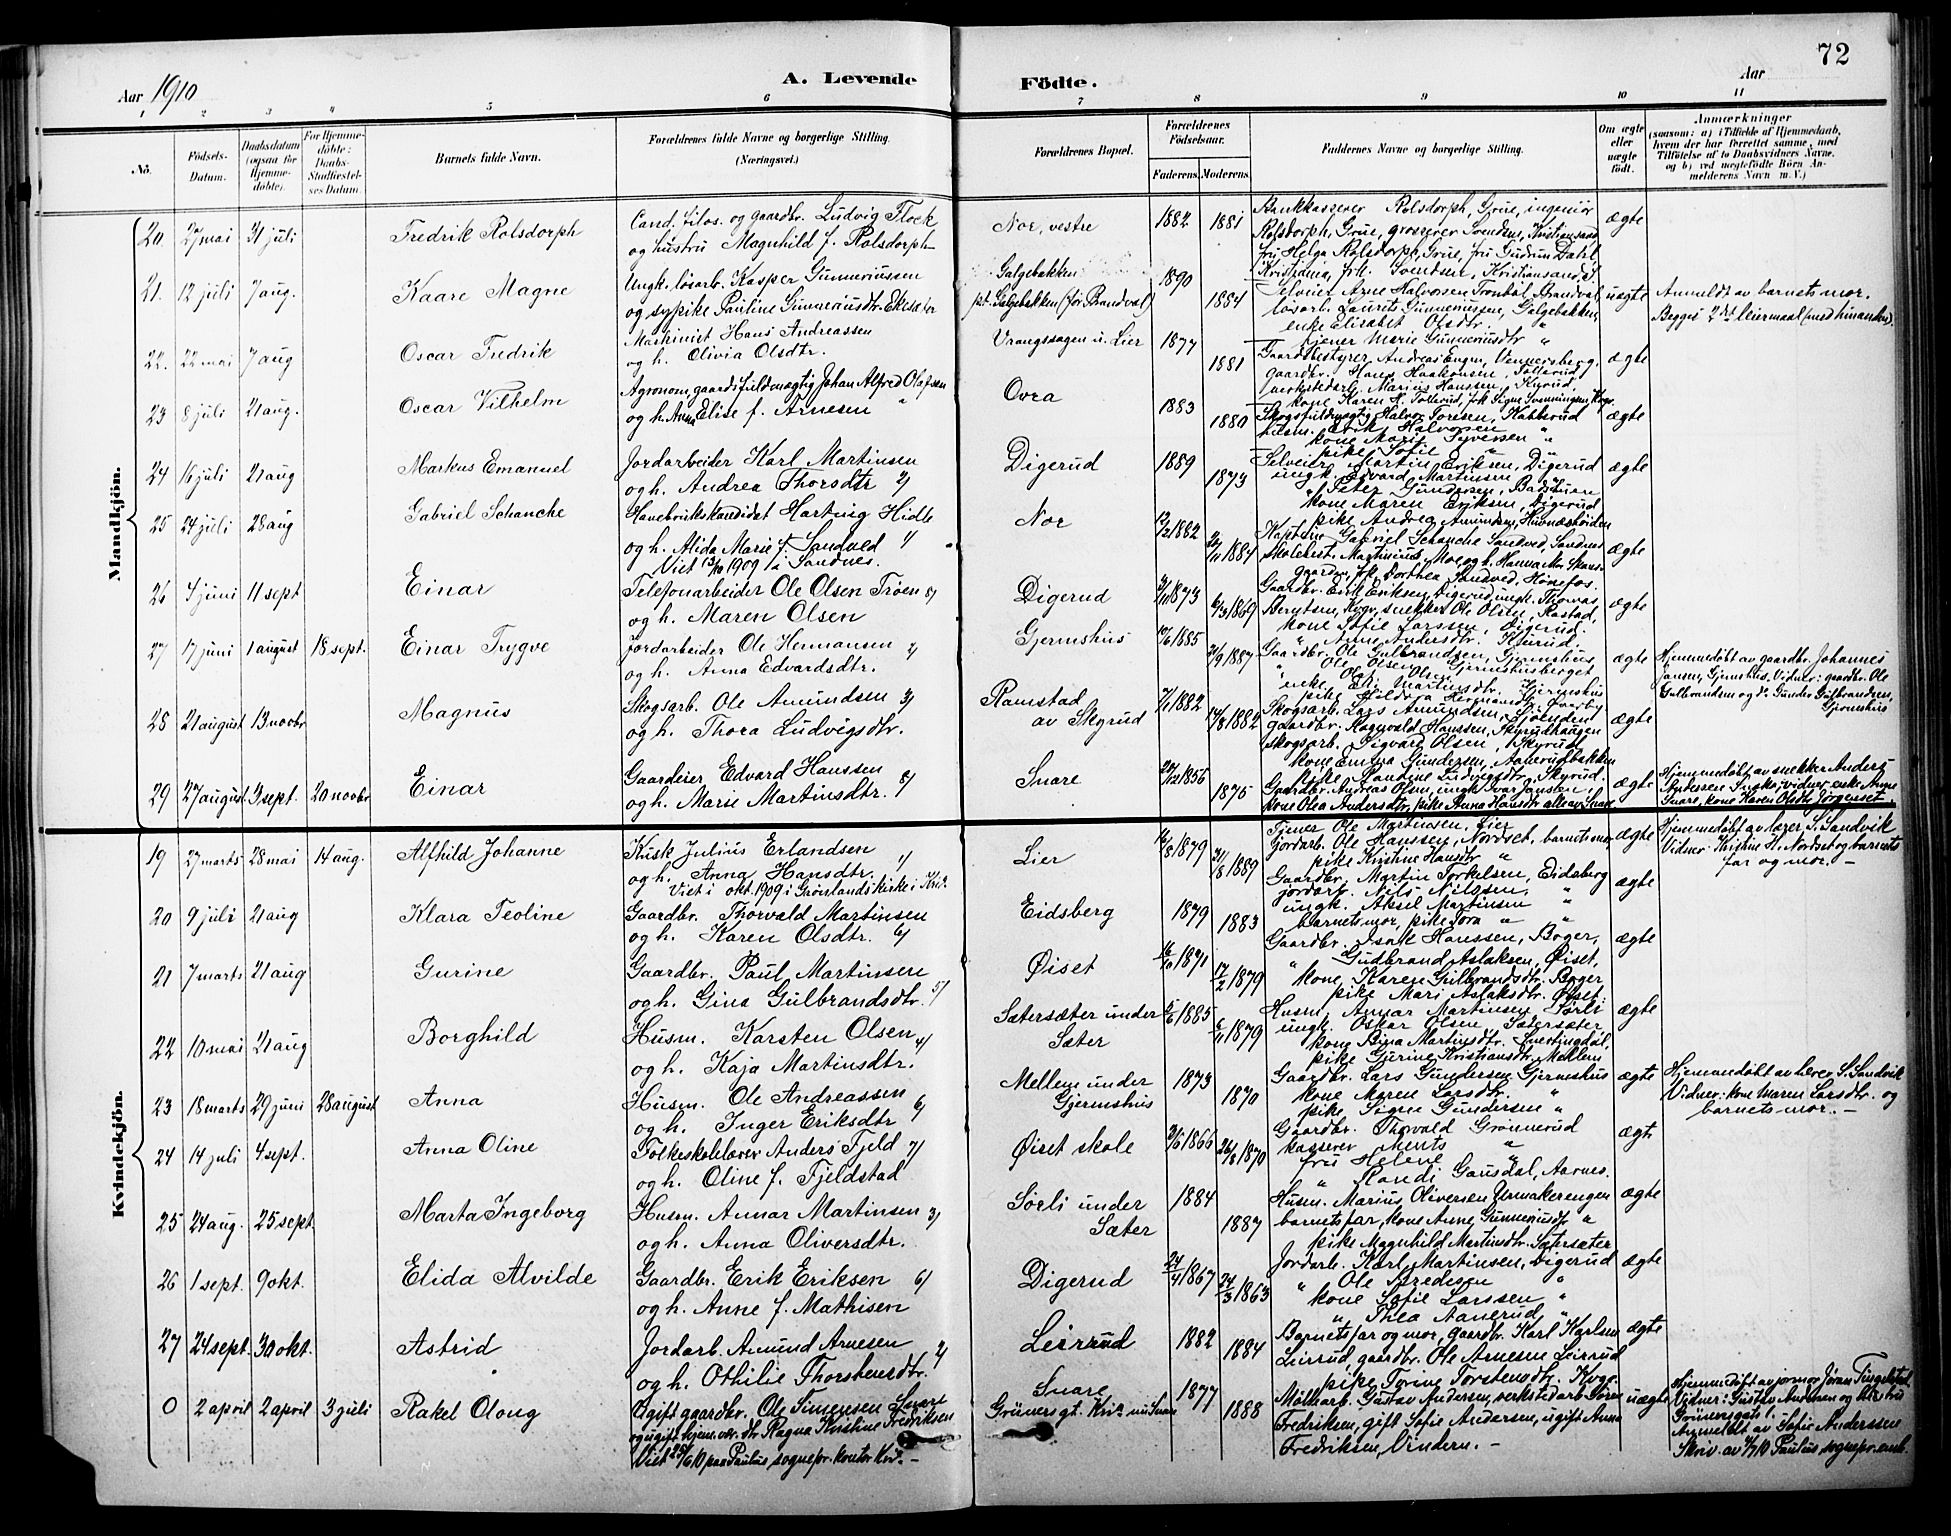 72
Aar 1910
A. Levende
Födte.
Aar
1 2 3 4 5 6 7 8 9 10 11
No.
Födsels-Datum.
Daabsdatum (ogsaa för Hjemme-döbte).
For Hjemme-döbte: Daabs-Stadfæstel-ses Datum.
Barnets fulde Navn.
Forældrenes fulde Navne og borgerlige Stilling. (Næringsvei.)
Forældrenes Bopæl.
Forældrenes Födselsaar.
Faderens. Moderens.
Faddernes Navne og borgerlige Stilling.
Om ægte eller uægte födt.
Anmærkninger
(saasom: a) i Tilfælde af Hjemmedaab, hvem der har forrettet samme, med Tilföielse af to Daabsvidners Navne, og b) ved uægtefödte Börn An-melderens Navn m. V.)
Mandkjön.
20 27 mai 31 juli Fredrik Rolsdorph
Cand. filos. og gaardbr. Ludvig Flock
og hustru Magnhild f. Rolsdorph
Nor, vestre 1882 1881
Bankkasserer Rolsdorph, Grue, ingeniør
Rolsdorph, Grue, grosserer Svendsen, Kristiansand
fru Helga Rolsdorph, Grue, fru Gudrun Dahl,
Kristiania, frk. Svendsen, Kristiansand
ægte
21. 12 juli 7 aug. Kaare Magne
Ungk. løsarb. Kasper Gunneriussen
og sypike Pauline Gunneriusdtr.
Galgebakken
pt. Galgebakken (før Brandval)
1890 1884
Selveier Arne Halvorsen Brandval
løsarb. Laurits Gunneriussen, Galgebakken,
enke Elisabet Olsdtr. "
tjener Marie Gunneriusdtr "
uægte
Anmeldt av barnets mor.
Begges 2det leiermaal (med hinanden).
22. 22 mai 7 aug Oscar Fredrik
Maskinist Hans Andreassen
og h. Olivia Olsdtr.
Vrangssagen u. Lier 1877 1881
Gaardsbestyrer Andreas Engen, Vennersberg,
gaardbr. Hans Haakonsen, Tollerud,
verkstedarb. Marius Hanssen, Kyrud,
kone Karen H. Tollerud, frk Signe Svenningsen, Kvgr.
ægte
23 8 juli 21 aug. Oscar Vilhelm
Agronom, gaardsfuldmægtig Johan Alfred Olafsen
og h. Anna Elise f. Arnesen "
Ovra 1883 1880
Skogsfuldmægtig Halvor Toresen, Kabberud
Erik Halvorsen "
kone Marie Syversen "
pike Sofie "
ægte
24 16 juli 21 aug Markus Emanuel
Jordarbeider Karl Martinsen
og h. Andrea Thorsdtr 2/
Digerud 1889 1873
Selveier Martin Eriksen, Digerud
ungk. Edvard Martinsen "
" Peter Gundersen, Badstuen
kone Maren Eriksen, Digerud
pike Andrea Amundsen, Hvnæshøiden
ægte
25 24 juli 28 aug Gabriel Schanche
Havebrukskandidat Hartvig Hidle
og h. Alida Marie f. Sandved 1/
Viet 13/10 1909 i Sandnes.
Nor 12/2 1882 1884
Kaptein Gabriel Schanche Sandved, Sandnes
Malerm. Martinius Moe og h. Hanna
gaarden, frk. Dorthea Sandved, Hønefos.
ægte
26 4 juni 11 sept Einar
Telefonarbeider Ole Olsen Trøen 8/
og h. Maren Olsen
Digerud 1873 6/3 1869
Gaardbr. Erik Eriksen, Digerud, ungk. Thomas
Berntsen, Kvgr, snekker Ole Olsen, Rastad,
kone Sofie Larssen, Digerud.
" Anne Andersdtr.
ægte
27 17 juni 1 august 18 sept. Einar Trygve
Jordarbeider Ole Hermansen 2/
og h. Anna Edvardsdtr.
Gjermshus 10/6 1885 21/9 1887
Gaardbr. Ole Gulbrandsen, Gjermshus
" Ole Olsen, Gjermshusberget
enke Eli Martinsdtr. Gjermshus
pike Hildora Hermansdtr.
ægte
Hjemmedøbt av gaardbr. Johannes
Jansen, Gjermshus. Vidner: gaardbr. Ole
Gulbrandsen og do Gunder Gulbrandsen,
Gjermshus
25 21 august 13 novbr Magnus
Skogsarb. Ole Amundsen 3/
og h. Thora Ludvigsdtr.
Ramstad
av Skyrud
7/1 1882 14/8 1882
Skogsarb. Lars Amundsen, Sjøenden
gaardbr. Ragnvald Hanssen, Skyrudhaugen
skogsarb. Sigvard Olsen, Skyrud
kone Emma Gundersen, Aanerudbakken
pike Randine Ludvigsdtr, Skyrud.
ægte
29 27 august 3 sept. 20 novbr Einar
Gaardeier Edvard Hanssen
og h. Marie Martinsdtr. 8/
Snare 20/12 1856 1875
Gaardbr. Andreas Olsen, ungk. Ivar Jansen,
kone Olea Andersdtr, pike Anna Hansdtr alle av Snare
ægte
Hjemmedøbt av snekker Anders
Andersen Snare; vidner: enke Anne
Snare, kone Karen Olsdtr Jørgenset.
Kvindekjön.
19 27 marts 28 mai 14 aug. Alfhild Johanne
Kusk Julius Erlandsen
og h. Anna Hansdtr. 1/
Viet i okt. 1909 i Grønlands kirke i Kria.
Lier 16/8 1879 31/8 1889
Tjener Ole Martinsen, Lier
jordarb. Ole Hanssen, Nordset, barnets mor
pike Kristine Hansdtr "
ægte
Hjemmedøbt av lærer S. Sandvik
Vidner: Kristine H. Nordset og barnets
far og mor. –
20 9 juli 21 aug Klara Teoline
Gaardbr. Thorvald Martinsen
og h. Karen Olsdtr. 6/
Eidsberg 1879 1883
Gaardbr. Martin Torkelsen, Eidsberg
jordarb. Nils Nilssen, "
ungk. Aksel Martinsen "
barnets mor, pike Tora " "
ægte
21 7 marts 21 aug Gurine
Gaardbr. Paul Martinsen
og h. Gina Gulbrandsdtr. 5/
Øiset 16/10 1871 17/2 1879
Gaardbr. Isak Hanssen, Boger,
" Gudbrand Aslaksen, Øiset,
kone Karen Gulbrandsdtr. Boger
pike Mari Aslaksdtr. Øiset.
ægte
22 10 mai 21 aug Borghild
Husm. Karsten Olsen 4/
og h. Kaja Martinsdtr.
Sætersæter under
Sæter
5/6 1885 6/11 1879
Husm. Annar Martinsen Sørli
ungk. Oskar Olsen Sætersæter,
kone Bina Martinsdtr.
pike Gurine Kristiansdtr. Mellem
ægte
23 18 marts 29 juni 28 august Anna
Husm. Ole Andreassen
og h. Inger Eriksdtr 6/
Mellem under
Gjermshus
1873 1870
Gaardbr. Lars Gundersen Gjermshus
kone Maren Larsdtr. "
pike Signe Gundersen "
ægte
Hjemmedøbt av lærer S. Sandvik
Vidner: kone Maren Larsdtr. og
barnets mor. –
24 14 juli 4 sept. Anna Oline
Folkeskolelærer Anders Fjeld 7/
og h. Oline f. Fjeldstad
Øiset skole 1866 26/8 1870
Gaardbr. Thorvald Grønnerud
kasserer Ments "
fru Helene "
" Randi Gausdal, Aarnes.
ægte
25 24 aug. 25 sept. Marta Ingeborg
Husm. Annar Martinsen 3/
og h. Anna Oliversdtr.
Sørli under
Sæter
1884 1887
Husm. Marius Oliversen
barnets far, kone Anne Gunneriusdtr "
pike Magnhild Martinsdtr. Sætersæter
ægte
26 1 sept. 9 okt. Elida Alvilde
Gaardbr. Erik Eriksen 6/
og h. Anne f. Mathisen
Digerud 24/4 1867 24/3 1863
Jordarb. Karl Martinsen, Digerud
" Ole Bredesen "
kone Sofie Larssen "
" Thea Aanerud "
ægte
27 24 sept. 30 okt. Astrid
Jordarb. Amund Arnesen 2/
og h. Othilie Thorstensdtr.
Leirrud 1882 1884
Barnets far og mor, gaardbr. Karl Karlsen
Leirrud, gaardbr. Ole Arnesen Leirrud
pike Torine Torstensdtr. Kvgr.
ægte
0 2 april 2 april 3 juli Rakel Olaug
Ugift gaardbr. Ole Simensen Snare
og ugift hjem.vær. dtr Ragna Kristine Fredriksen
Viet 25/6 10 paa Paulus sognepr. kontor Kra. –
Snare
Grünersgt. Kria nu Snare
1877 1888
Gustav Andersen, verkstedarb.
Fredriksen, gift Sofie Andersen, ugift Anna
Fredriksen, Vindern. –
uægte
Hjemmedøbt av jormor Jøran Tingelstad
Vidner: Gustav Andersen og
Grünersgate 1.
Anmeldt av Sofie Anderssen
Skriv. av 4/7 10 Paulus sognepr. emb.